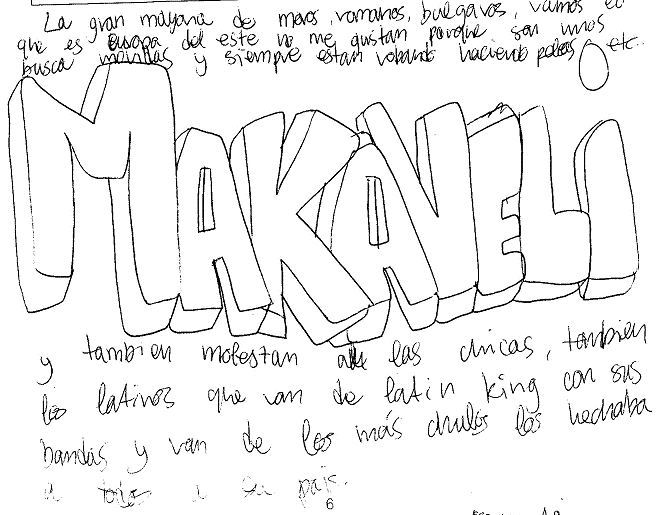 La gran mayoria de moros, romanos, bulgaros, vamos lo
que es europa del este no me gustan porque son unos
busca movidas y siempre estan robando haciendo peleas etc..
MAKAVELI
y tambien molestan a las chicas, tambien
los latinos que van de latin king con sus
bandas y van de los más chulos los hechaba
a a su pais.
6